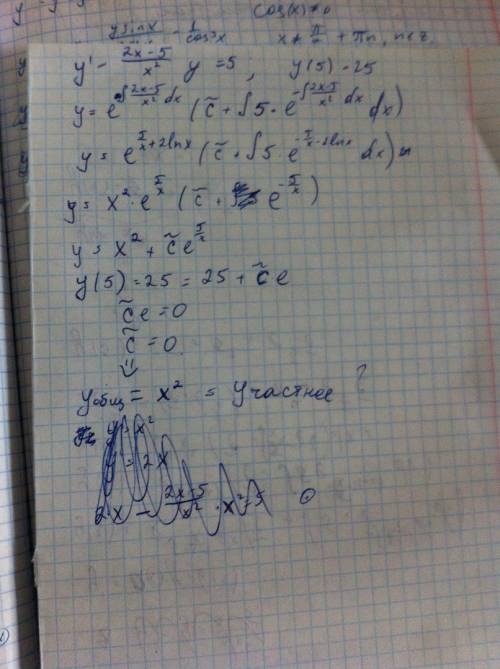 cos(x) ≠ 0
y sin x — 1/cos³x x ≠ π/2 + πn, n ∈ Z.
y' - (2x-5)/x² y = 5 ; y(5) = 25
y = e^(∫(2x-5)/x² dx) (c̃ + ∫5 · e^(-∫(2x-5)/x² dx) dx)
y = e^(5/x + 2lnx) (c̃ + ∫5 · e^(-5/x - 2lnx) dx) =
y = x² · e^(5/x) (c̃ + e^(-5/x))
y = x² + c̃ e^(5/x)
y(5) = 25 = 25 + c̃ e
c̃ e = 0
c̃ = 0.
⇓
y общ = x² = y частное ?
y = x²
y' = 2x
2x - (2x-5)/x² · x² = 5